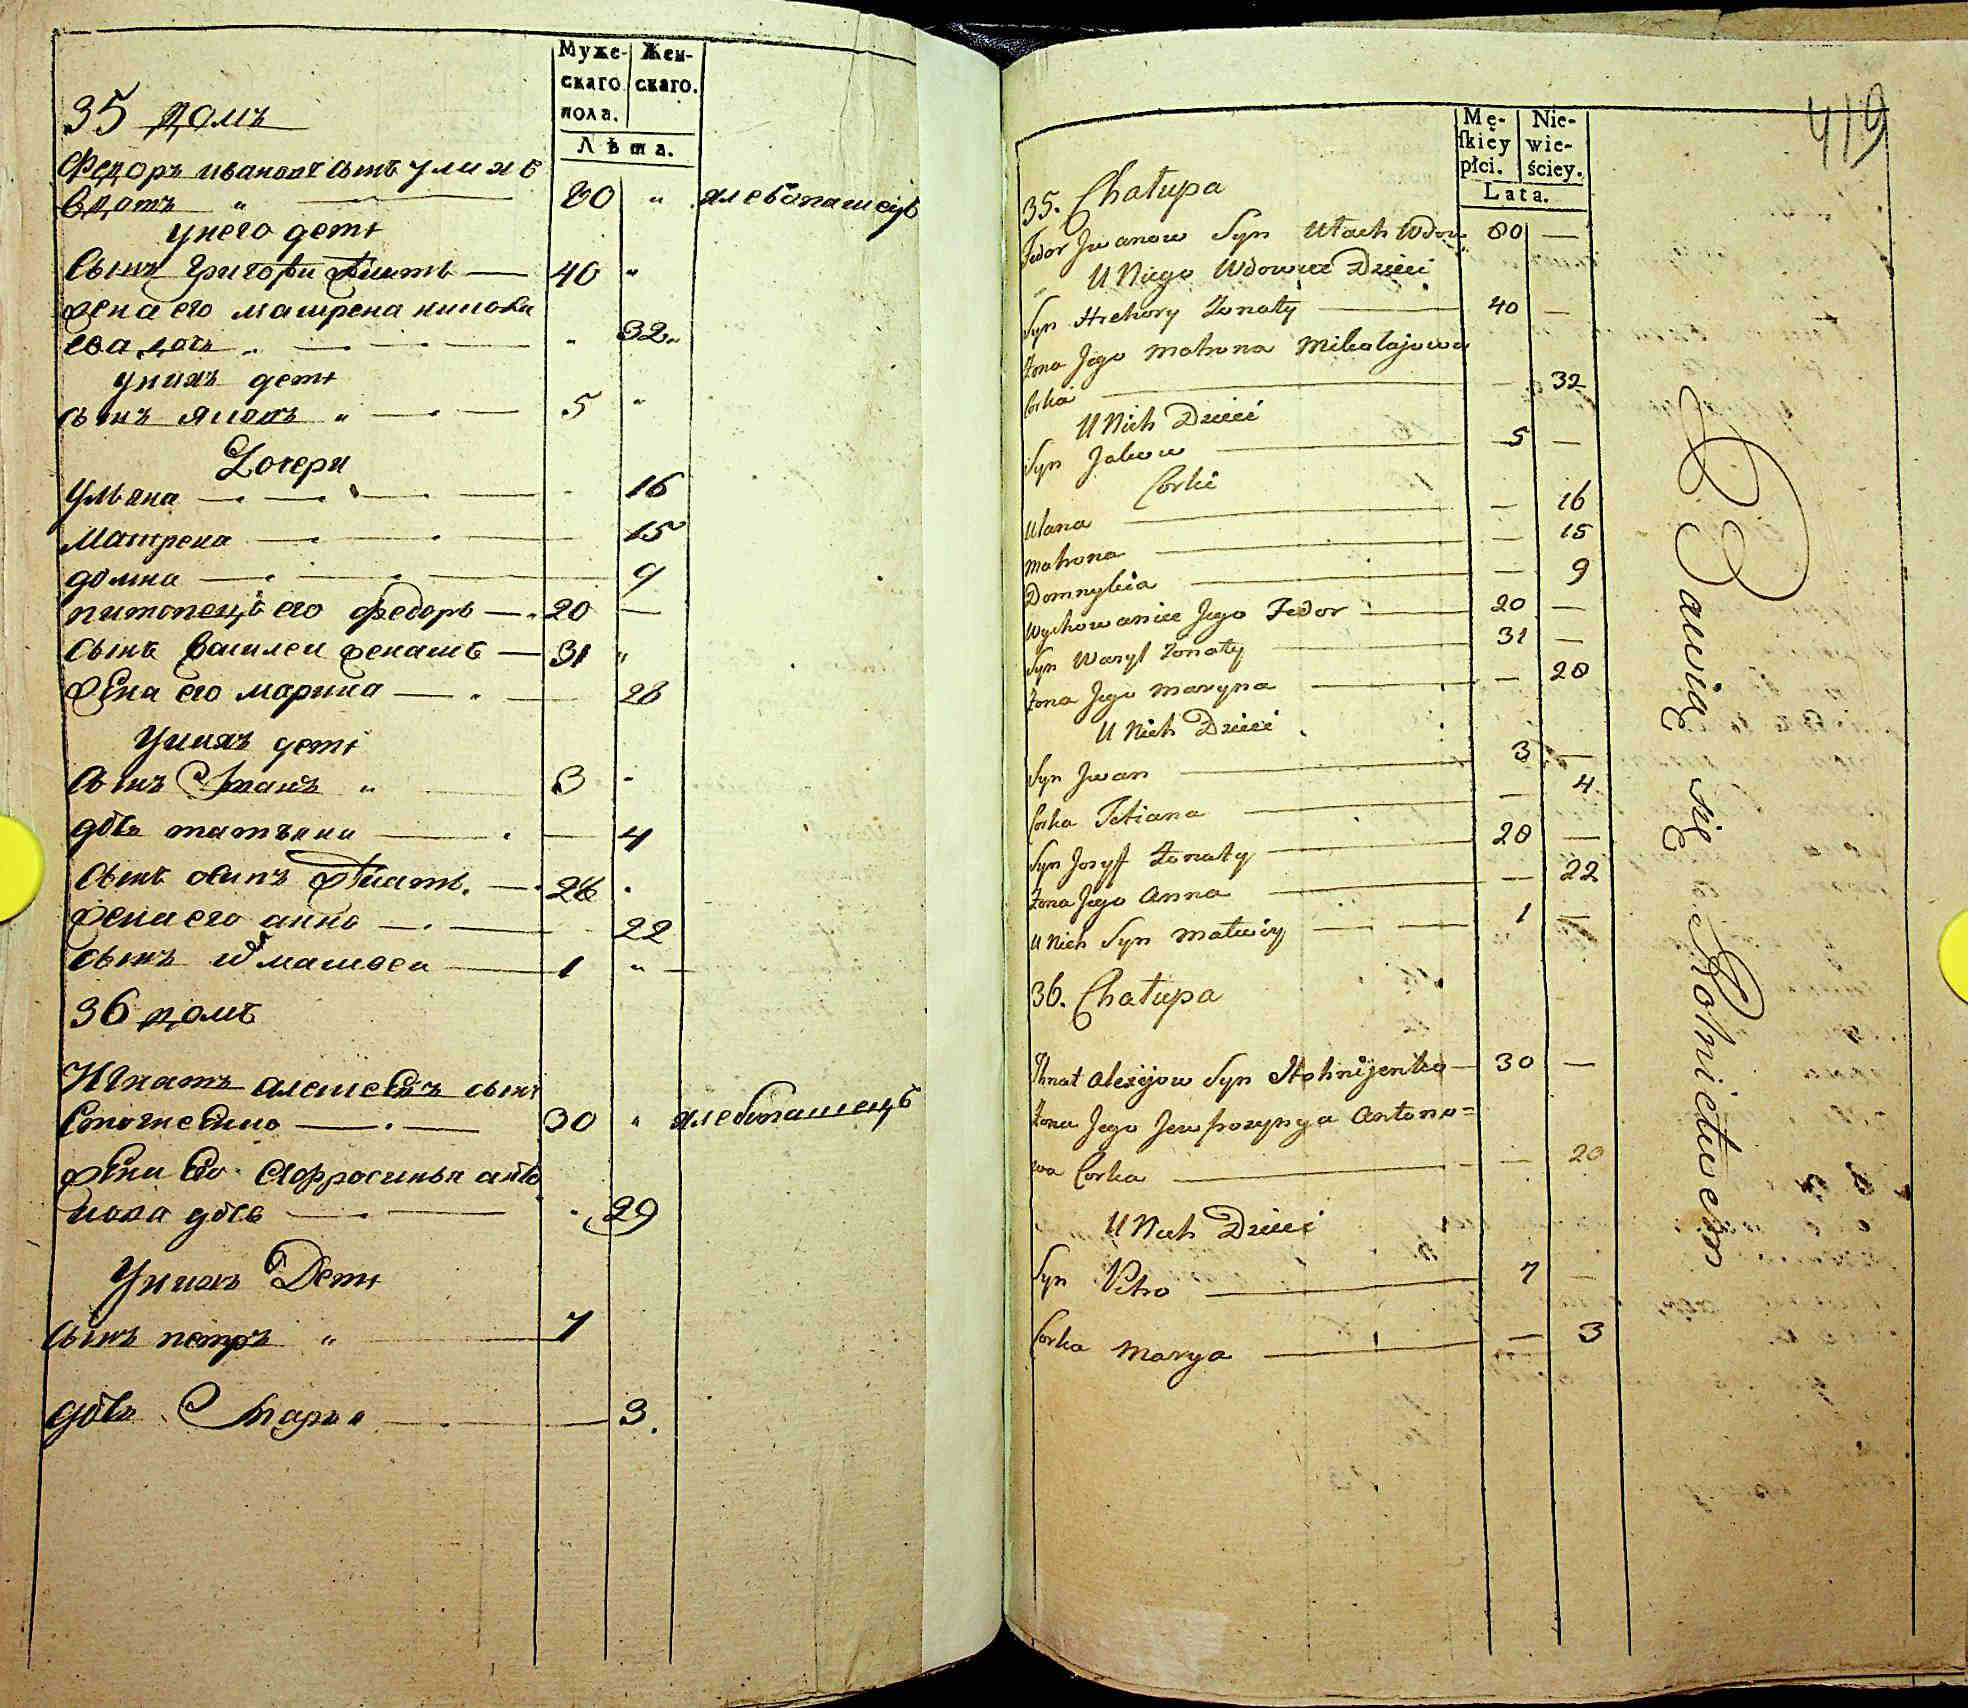 Муже- Жен-
скаго скаго.
пола.
Лѣта.
35 домъ
Федоръ ивановъ сынъ улихъ
вдотъ " 80 " хлебопашецъ
унего дети
сынъ Григореи женатъ 40 "
жена его матрена николае
ева дочь " 32 "
унихъ дети
сынъ яковъ " 5 "
Дочери
ульяна 16
матрена 15
домна 9
питомецъ его федоръ 20
сынъ василеи женатъ 31 "
жена его марина 28
Унихъ дети
сынъ Иванъ " 3
дочь татьяна 4
сынъ осипъ женатъ 28
жена его анна 22
сынъ матвеи 1 "
36 домъ
Игнатъ алексеевъ сынъ
30 " хлебопашецъ
жена его афросинья анто
нова дочь 29
Унихъ Дети
сынъ петръ " 7
дочь Марья 3
419
Mę- Nie-
ſkiey wie-
płci. ściey.
Lata.
35. Chałupa
Fedor Jwanow Syn Ułach Wdow 80 —
U Niego Wdowca Dzieci
Syn Hrehory Żonaty 40 —
Żona Jego Matrona Mikołajowa
Corka — 32
U Nich Dzieci
Syn Jakow 5 —
Corki
Ulana — 16
Matrona — 15
Domnykia — 9
Wychowaniec Jego Fedor 20 —
Syn Wasyl Żonaty 31 —
Żona Jego Maryna — 28
U Nich Dzieci
Syn Jwan 3 —
Corka Tetiana — 4
Syn Jozyf Żonaty 28 —
Żona Jego Anna — 22
U Nich Syn Matwiy 1 —
36. Chałupa
Ihnat Alexijow Syn Stohnijenko 30 —
Żona Jego Jewfrozynya Antono=
wa Corka — 29
U Nich Dzieci
Syn Petro 7 —
Corka Marya — 3
Bawią się Rolnictwem